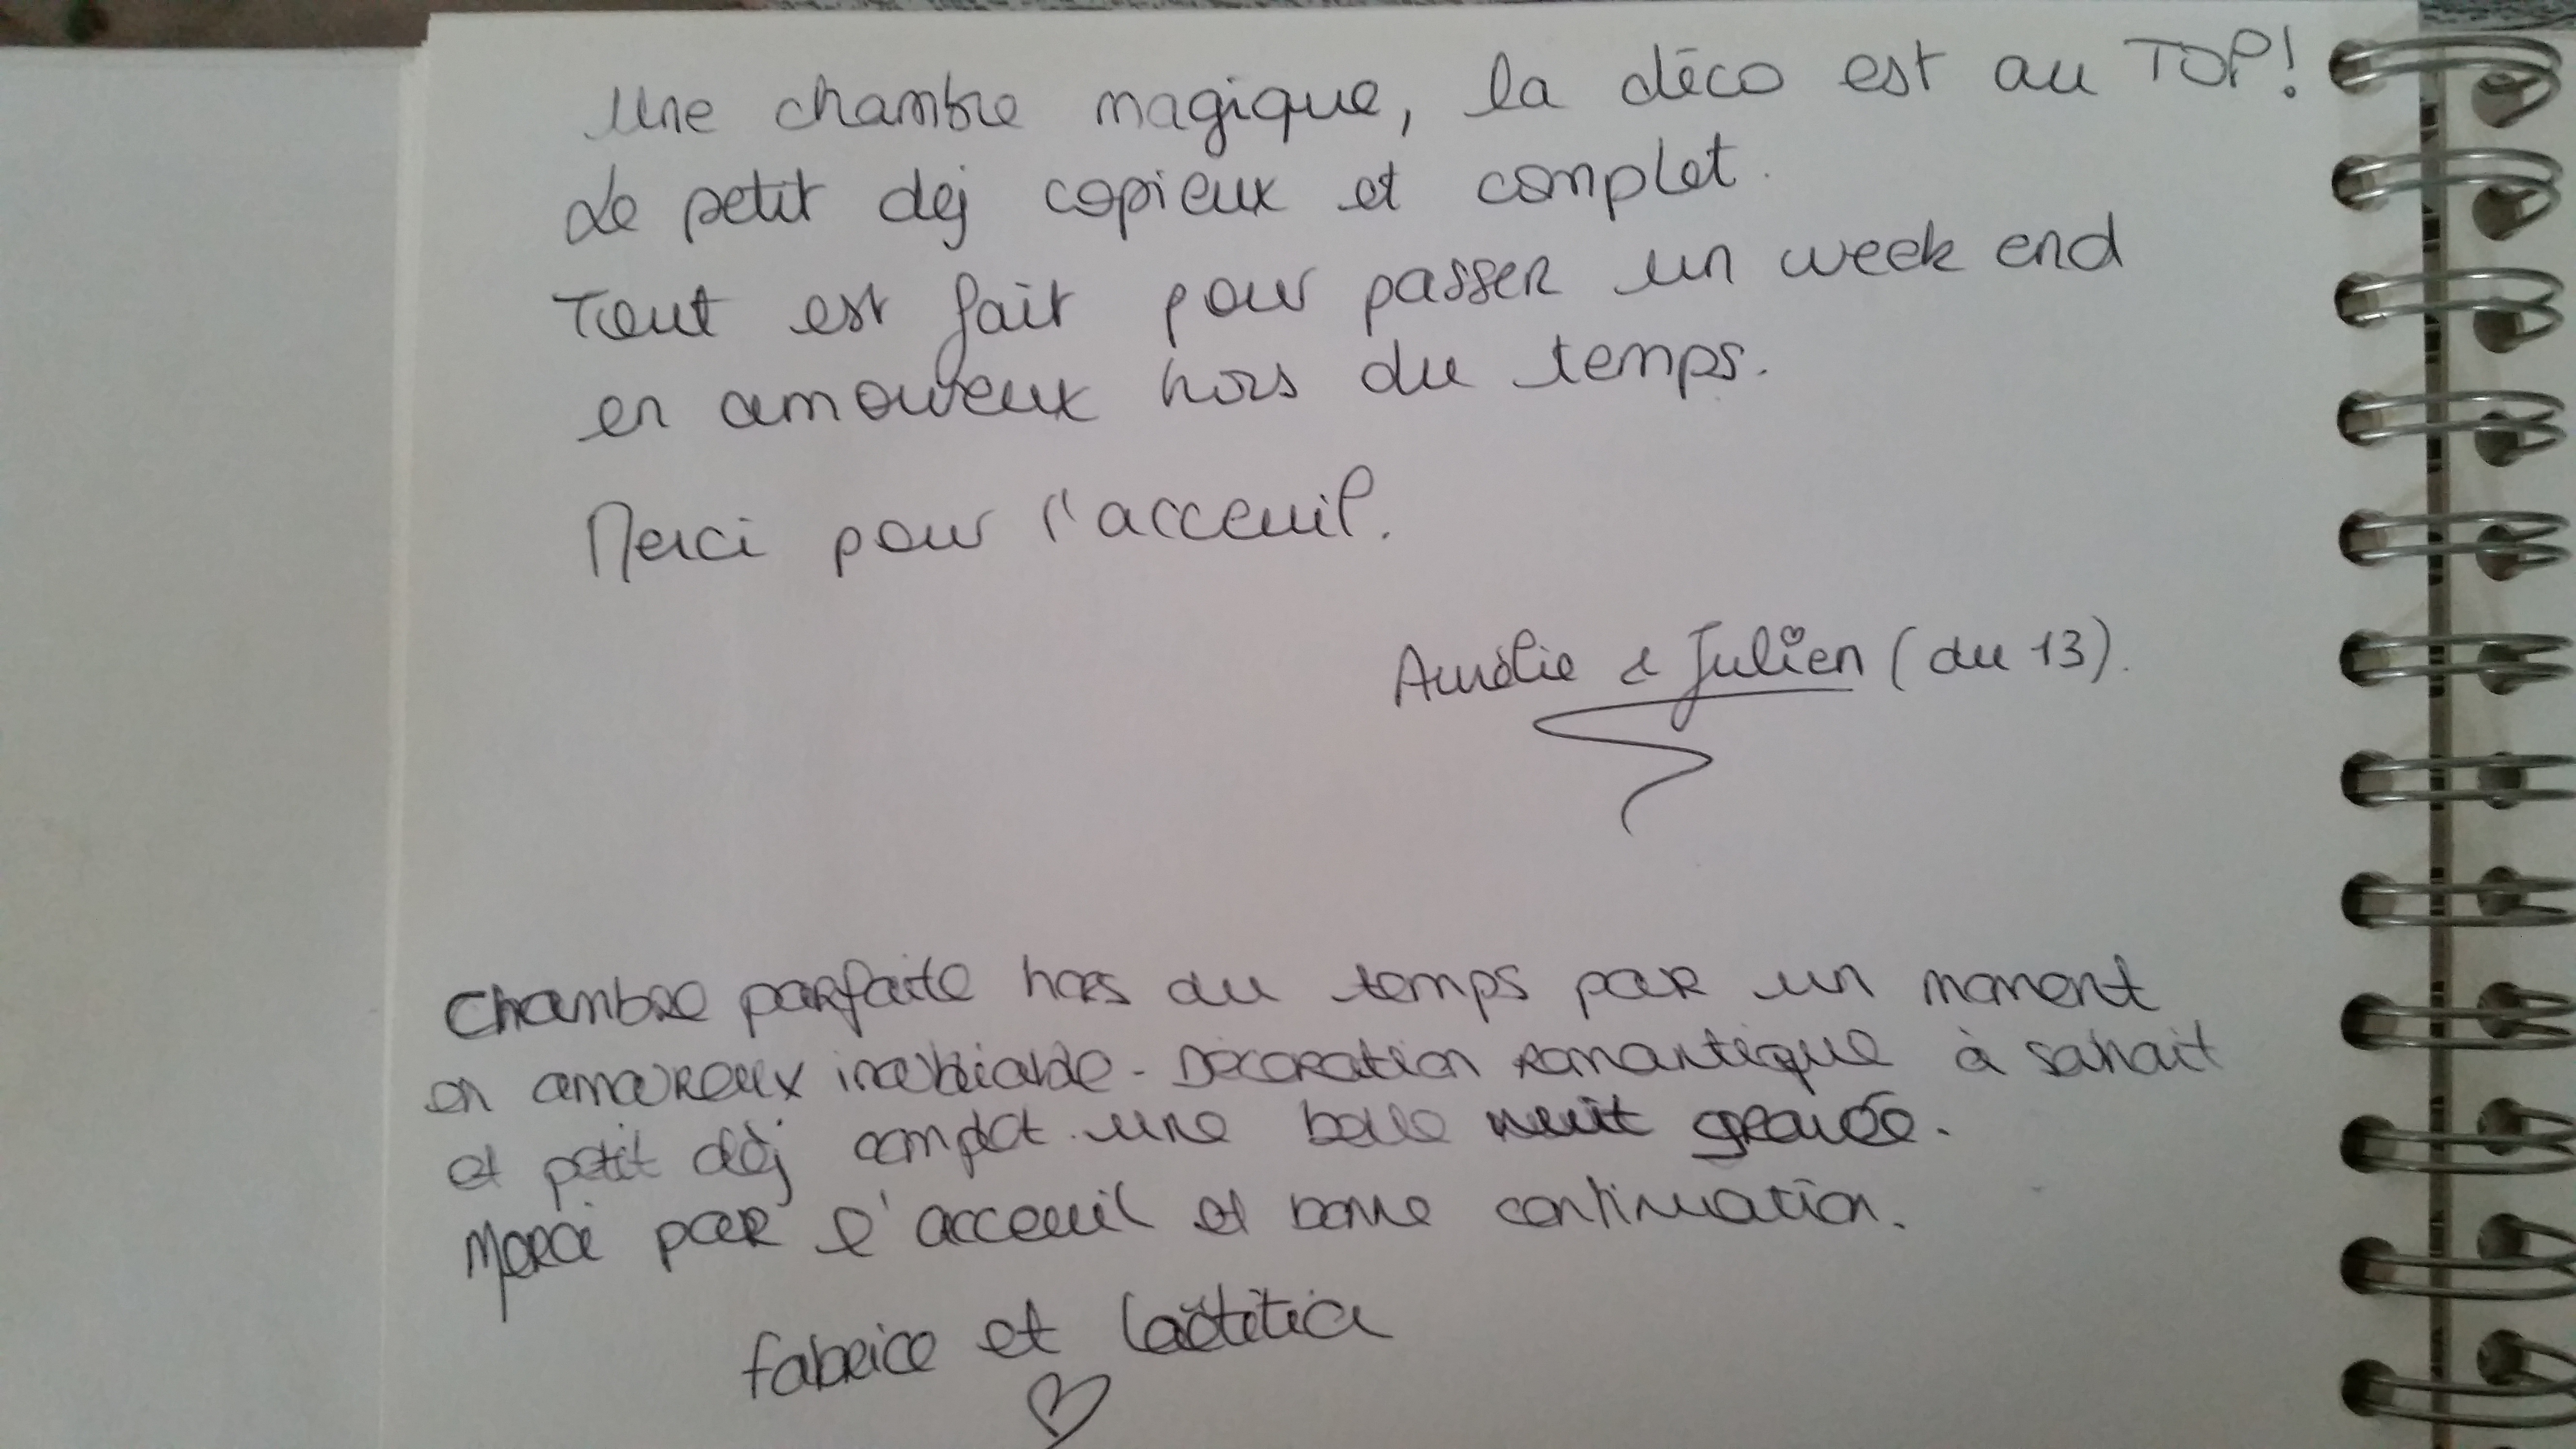 Une chambre magique, la déco est au TOP!
Le petit dej copieux et complet.
Tout est fait pour passer un week end
en amoureux hors du temps.
Merci pour l'acceuil.
Aurélie & Julien (du 13).
Chambre parfaite hors du temps pour un moment
en amoureux inoubliable. Décoration romantique à souhait
et petit dèj complet. une belle nuit
Merci pour l'acceuil et bonne continuation.
fabrice et Laëtitia